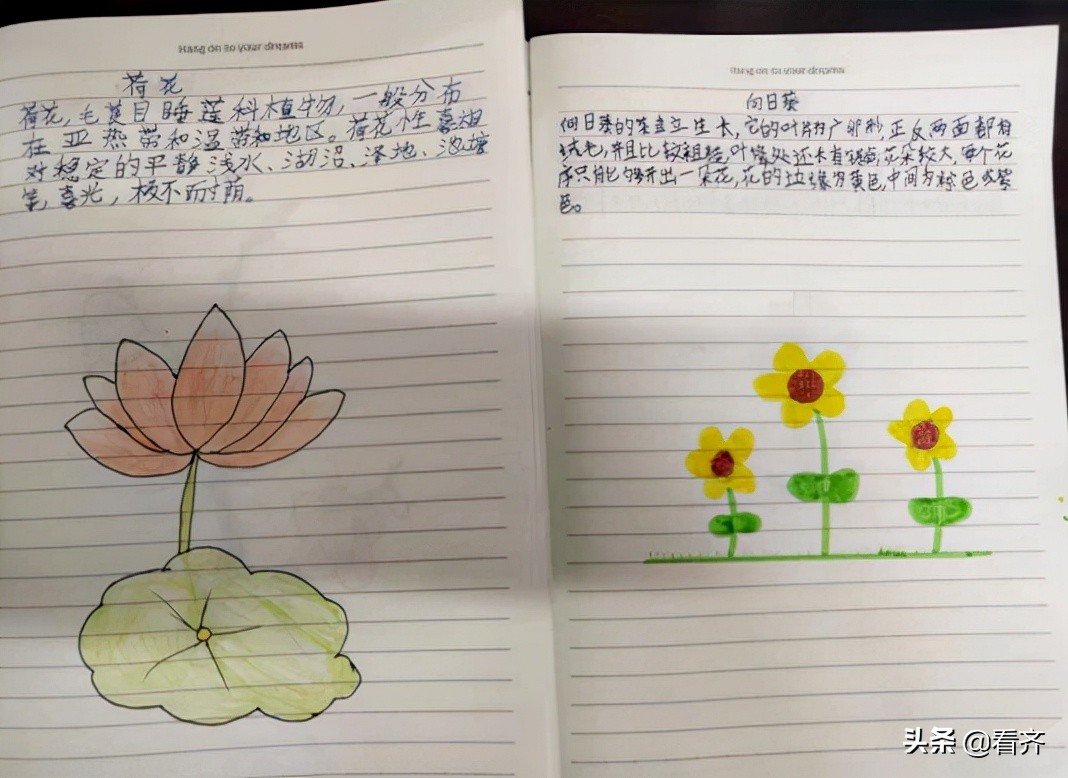 Hang on to your dreams
荷花
荷花,毛茛目睡莲科植物,一般分布
在亚热带和温带和地区。荷花性喜相
对稳定的平静浅水、湖沼、泽地、池塘
等,喜光,极不耐荫。
Hang on to your dreams
向日葵
向日葵的茎直立生长,它的叶片为广卵形,正反两面都有
绒毛,并且比较粗糙,叶缘处还长有锯齿,花朵较大,每个花
序只能够开出一朵花,花的边缘为黄色,中间为棕色或紫
色。
头条 @看齐